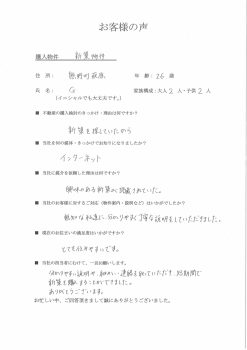 お客様の声
購入物件 新築物件
住所: 熊野町萩原 年齢: 26 歳
氏名: G 家族構成:大人 2 人・子供 2 人
(イニシャルでも大丈夫です。)
■ 不動産の購入検討のきっかけ・理由は何ですか?
新築を探していたから
■ 当社を何の媒体・きっかけでお知りになりましたか?
インターネット
■ 当社に媒介を依頼した理由は何ですか?
興味のある新築が掲載されていた。
■ 当社のお客様に対するご対応(物件案内・説明など)はいかがでしたか?
無知な私達に、分かりやすく丁寧な説明をしていただきました。
■ 現在のお住まいの満足度はいかがですか?
とても住みやすいです。
■ 当社の担当者にむけて、一言お願いします。
分かりやすい説明や、細かい連絡を取っていただき、短期間で
新築を購入することができました。
ありがとうございます。
お忙しい中、ご回答頂きまして誠にありがとうございました。